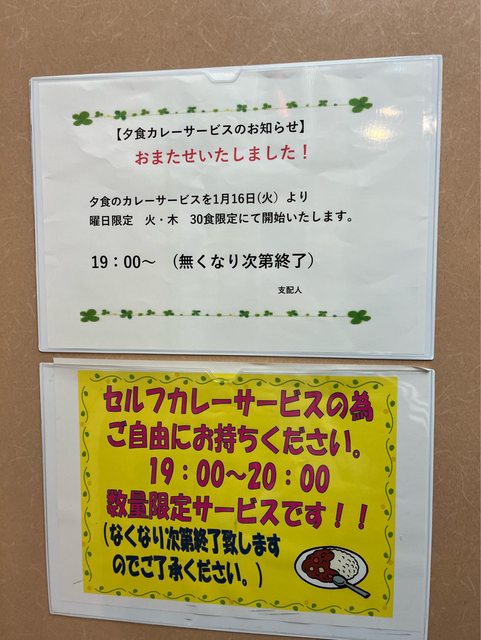 【夕食カレーサービスのお知らせ】
おまたせいたしました！
夕食のカレーサービスを1月16日(火) より
曜日限定 火・木 30食限定にて開始いたします。
19：00～ (無くなり次第終了)
支配人
セルフカレーサービスの為
ご自由にお持ちください。
19：00～20：00
数量限定サービスです！！
(なくなり次第終了致します
のでご了承ください。)